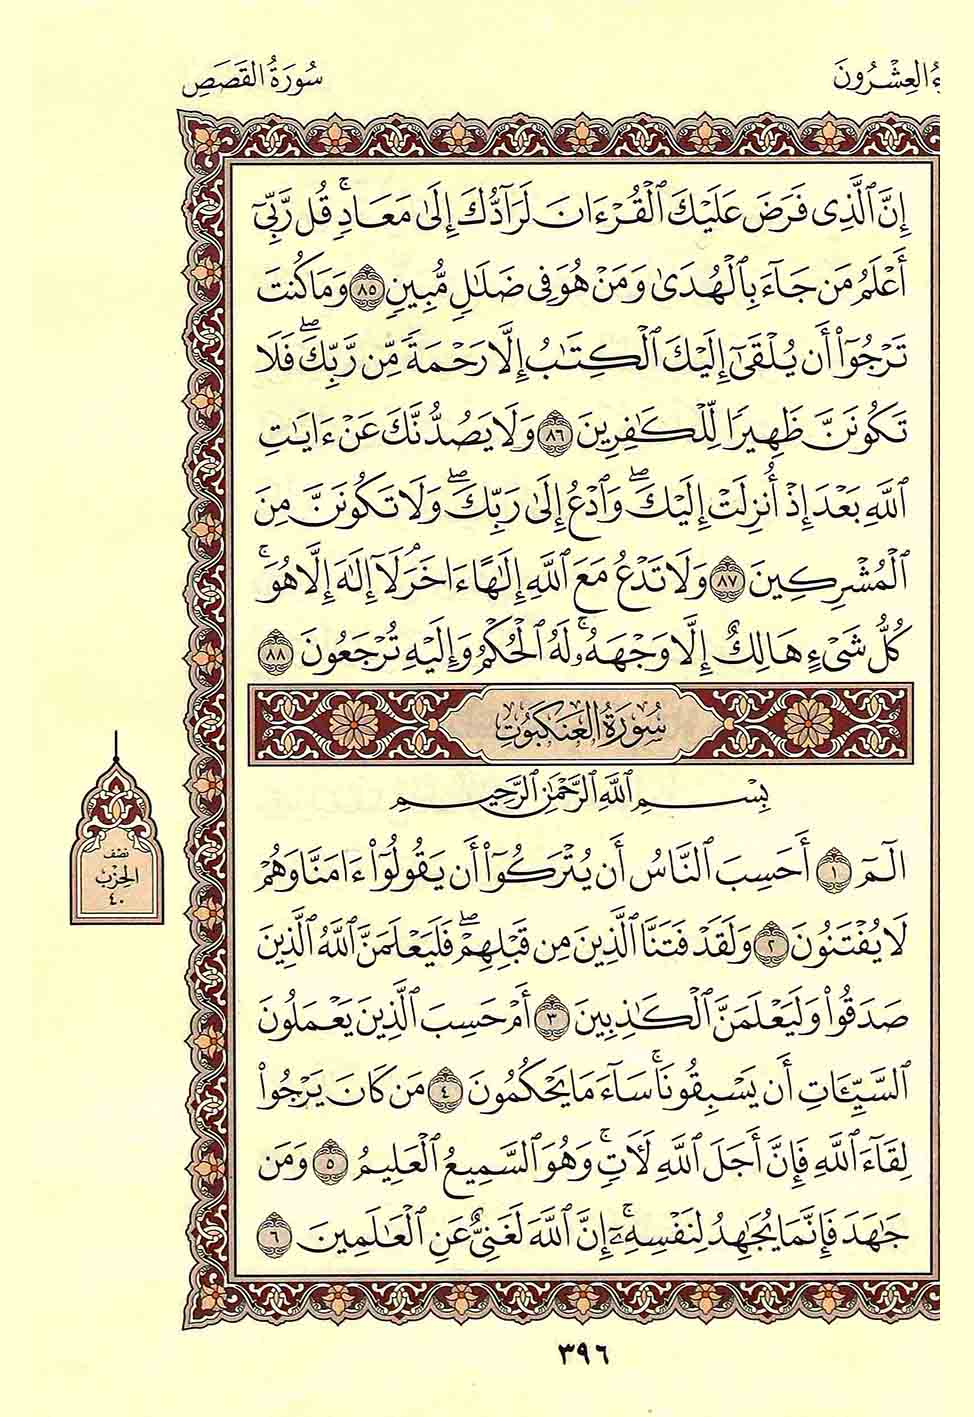 ءُ العِشْرُونَ
سُورَةُ القَصَصِ
إِنَّ ٱلَّذِى فَرَضَ عَلَيْكَ ٱلْقُرْءَانَ لَرَآدُّكَ إِلَىٰ مَعَادٍۚ قُل رَّبِّىٓ
أَعْلَمُ مَن جَآءَ بِٱلْهُدَىٰ وَمَنْ هُوَ فِى ضَلَٰلٍ مُّبِينٍ ٨٥ وَمَا كُنتَ
تَرْجُوٓا۟ أَن يُلْقَىٰٓ إِلَيْكَ ٱلْكِتَٰبُ إِلَّا رَحْمَةً مِّن رَّبِّكَۖ فَلَا
تَكُونَنَّ ظَهِيرًا لِّلْكَٰفِرِينَ ٨٦ وَلَا يَصُدُّنَّكَ عَنْ ءَايَٰتِ
ٱللَّهِ بَعْدَ إِذْ أُنزِلَتْ إِلَيْكَۖ وَٱدْعُ إِلَىٰ رَبِّكَۖ وَلَا تَكُونَنَّ مِنَ
ٱلْمُشْرِكِينَ ٨٧ وَلَا تَدْعُ مَعَ ٱللَّهِ إِلَٰهًا ءَاخَرَۘ لَآ إِلَٰهَ إِلَّا هُوَۚ
كُلُّ شَىْءٍ هَالِكٌ إِلَّا وَجْهَهُۥۚ لَهُ ٱلْحُكْمُ وَإِلَيْهِ تُرْجَعُونَ ٨٨
سُورَةُ العَنكَبُوتِ
بِسْمِ ٱللَّهِ ٱلرَّحْمَٰنِ ٱلرَّحِيمِ
الٓمٓ ١ أَحَسِبَ ٱلنَّاسُ أَن يُتْرَكُوٓا۟ أَن يَقُولُوٓا۟ ءَامَنَّا وَهُمْ
لَا يُفْتَنُونَ ٢ وَلَقَدْ فَتَنَّا ٱلَّذِينَ مِن قَبْلِهِمْۖ فَلَيَعْلَمَنَّ ٱللَّهُ ٱلَّذِينَ
صَدَقُوا۟ وَلَيَعْلَمَنَّ ٱلْكَٰذِبِينَ ٣ أَمْ حَسِبَ ٱلَّذِينَ يَعْمَلُونَ
ٱلسَّيِّـَٔاتِ أَن يَسْبِقُونَاۚ سَآءَ مَا يَحْكُمُونَ ٤ مَن كَانَ يَرْجُوا۟
لِقَآءَ ٱللَّهِ فَإِنَّ أَجَلَ ٱللَّهِ لَـَٔاتٍۚ وَهُوَ ٱلسَّمِيعُ ٱلْعَلِيمُ ٥ وَمَن
جَٰهَدَ فَإِنَّمَا يُجَٰهِدُ لِنَفْسِهِۦٓۚ إِنَّ ٱللَّهَ لَغَنِىٌّ عَنِ ٱلْعَٰلَمِينَ ٦
نصف
الحزب
٤٠
٣٩٦